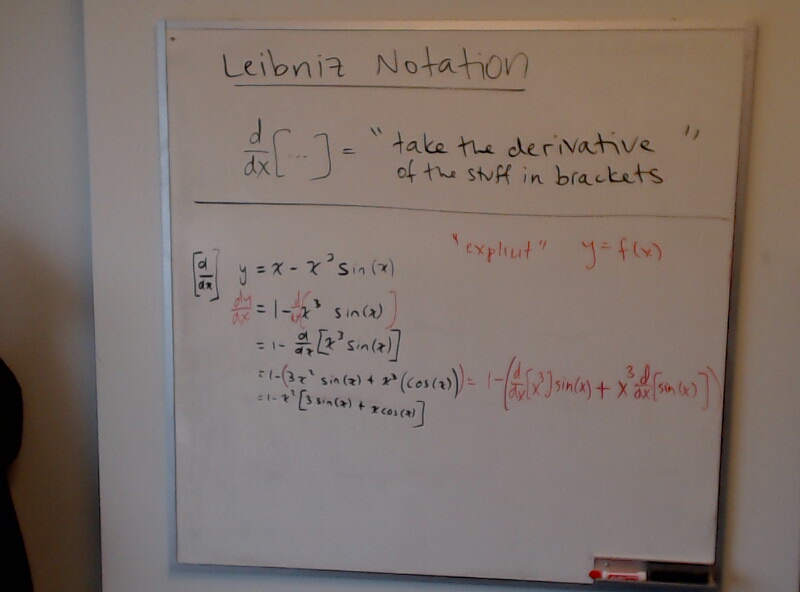 Leibniz Notation
d/dx [...] = "take the derivative of the stuff in brackets"
"explicit" y = f(x)
[d/dx] y = x - x³ sin(x)
dy/dx = 1 - d/dx [x³ sin(x)]
= 1 - d/dx [x³ sin(x)]
= 1 - (3x² sin(x) + x³ (cos(x))) = 1 - (d/dx [x³] sin(x) + x³ d/dx [sin(x)])
= 1 - x² [3 sin(x) + x cos(x)]